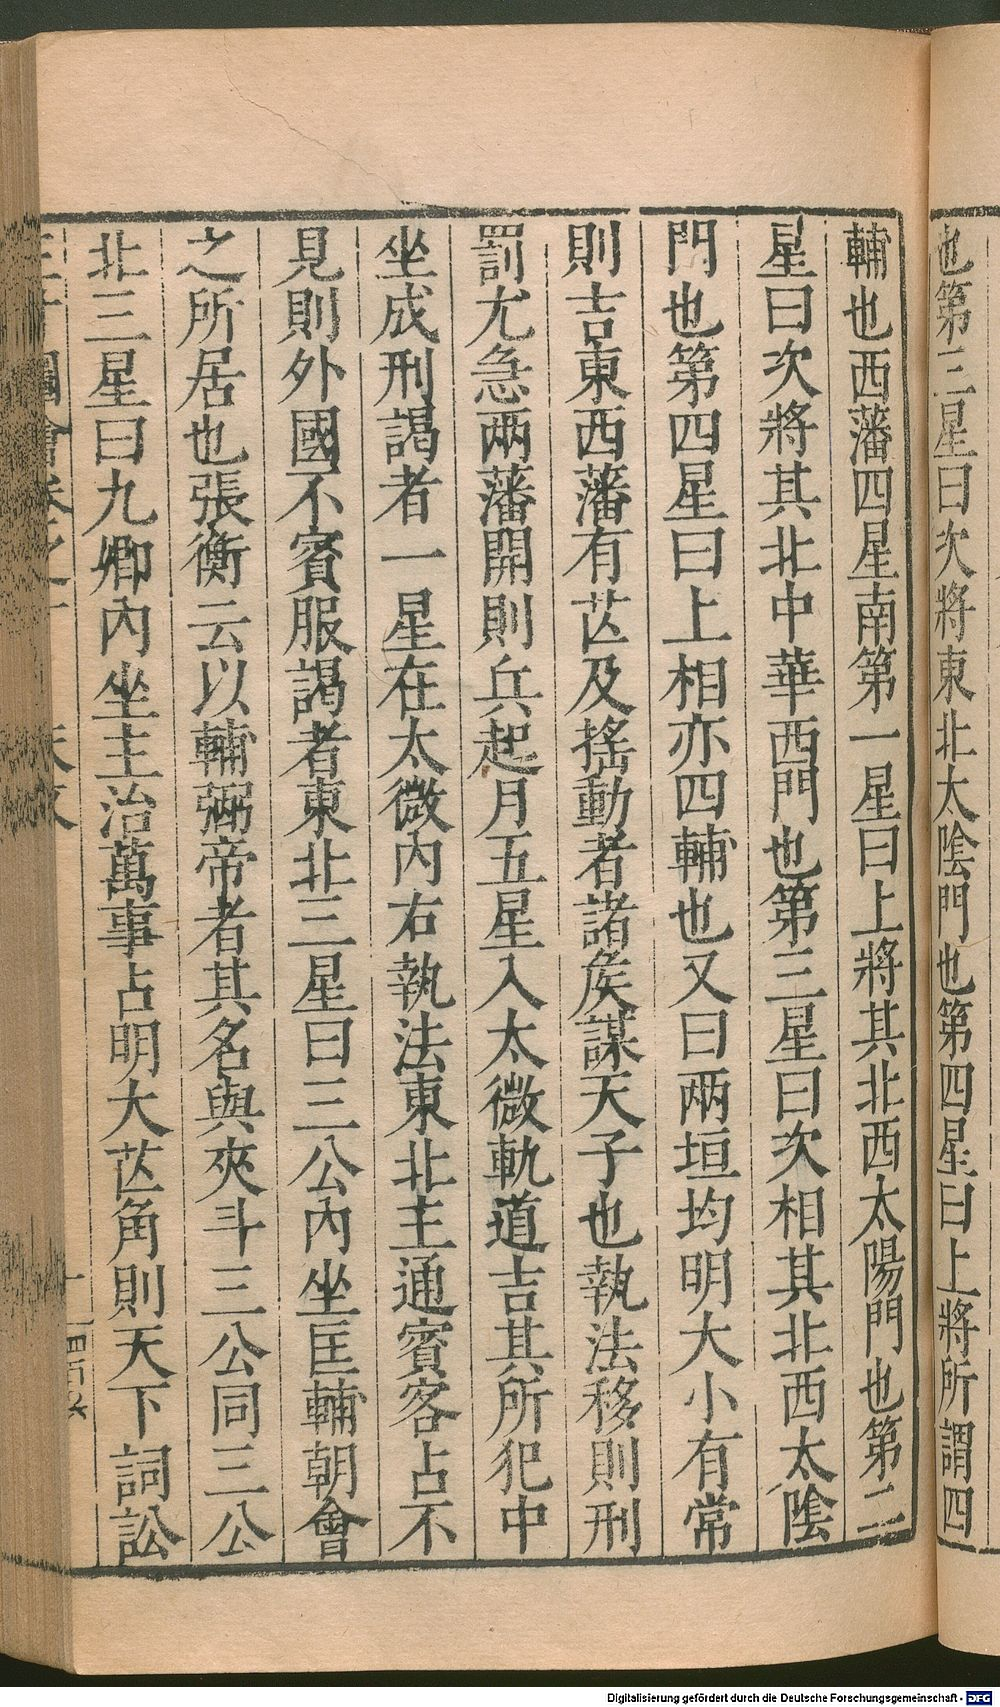 也第三星曰次將東北太陰門也第四星曰上將所謂四
輔也西藩四星南第一星曰上將其北西太陽門也第二
星曰次將其北中華西門也第三星曰次相其北西太陰
門也第四星曰上相亦四輔也又曰兩垣均明大小有常
則吉東西藩有芒及搖動者諸矦謀天子也執法移則刑
罰尤急兩藩開則兵起月五星入太微軌道吉其所犯中
坐成刑謁者一星在太微內右執法東北主通賓客占不
見則外國不賓服謁者東北三星曰三公內坐匡輔朝會
之所居也張衡云以輔弼帝者其名與夾斗三公同三公
北三星曰九卿內坐主治萬事占明大芒角則天下詞訟
Digitalisierung gefördert durch die Deutsche Forschungsgemeinschaft - DFG